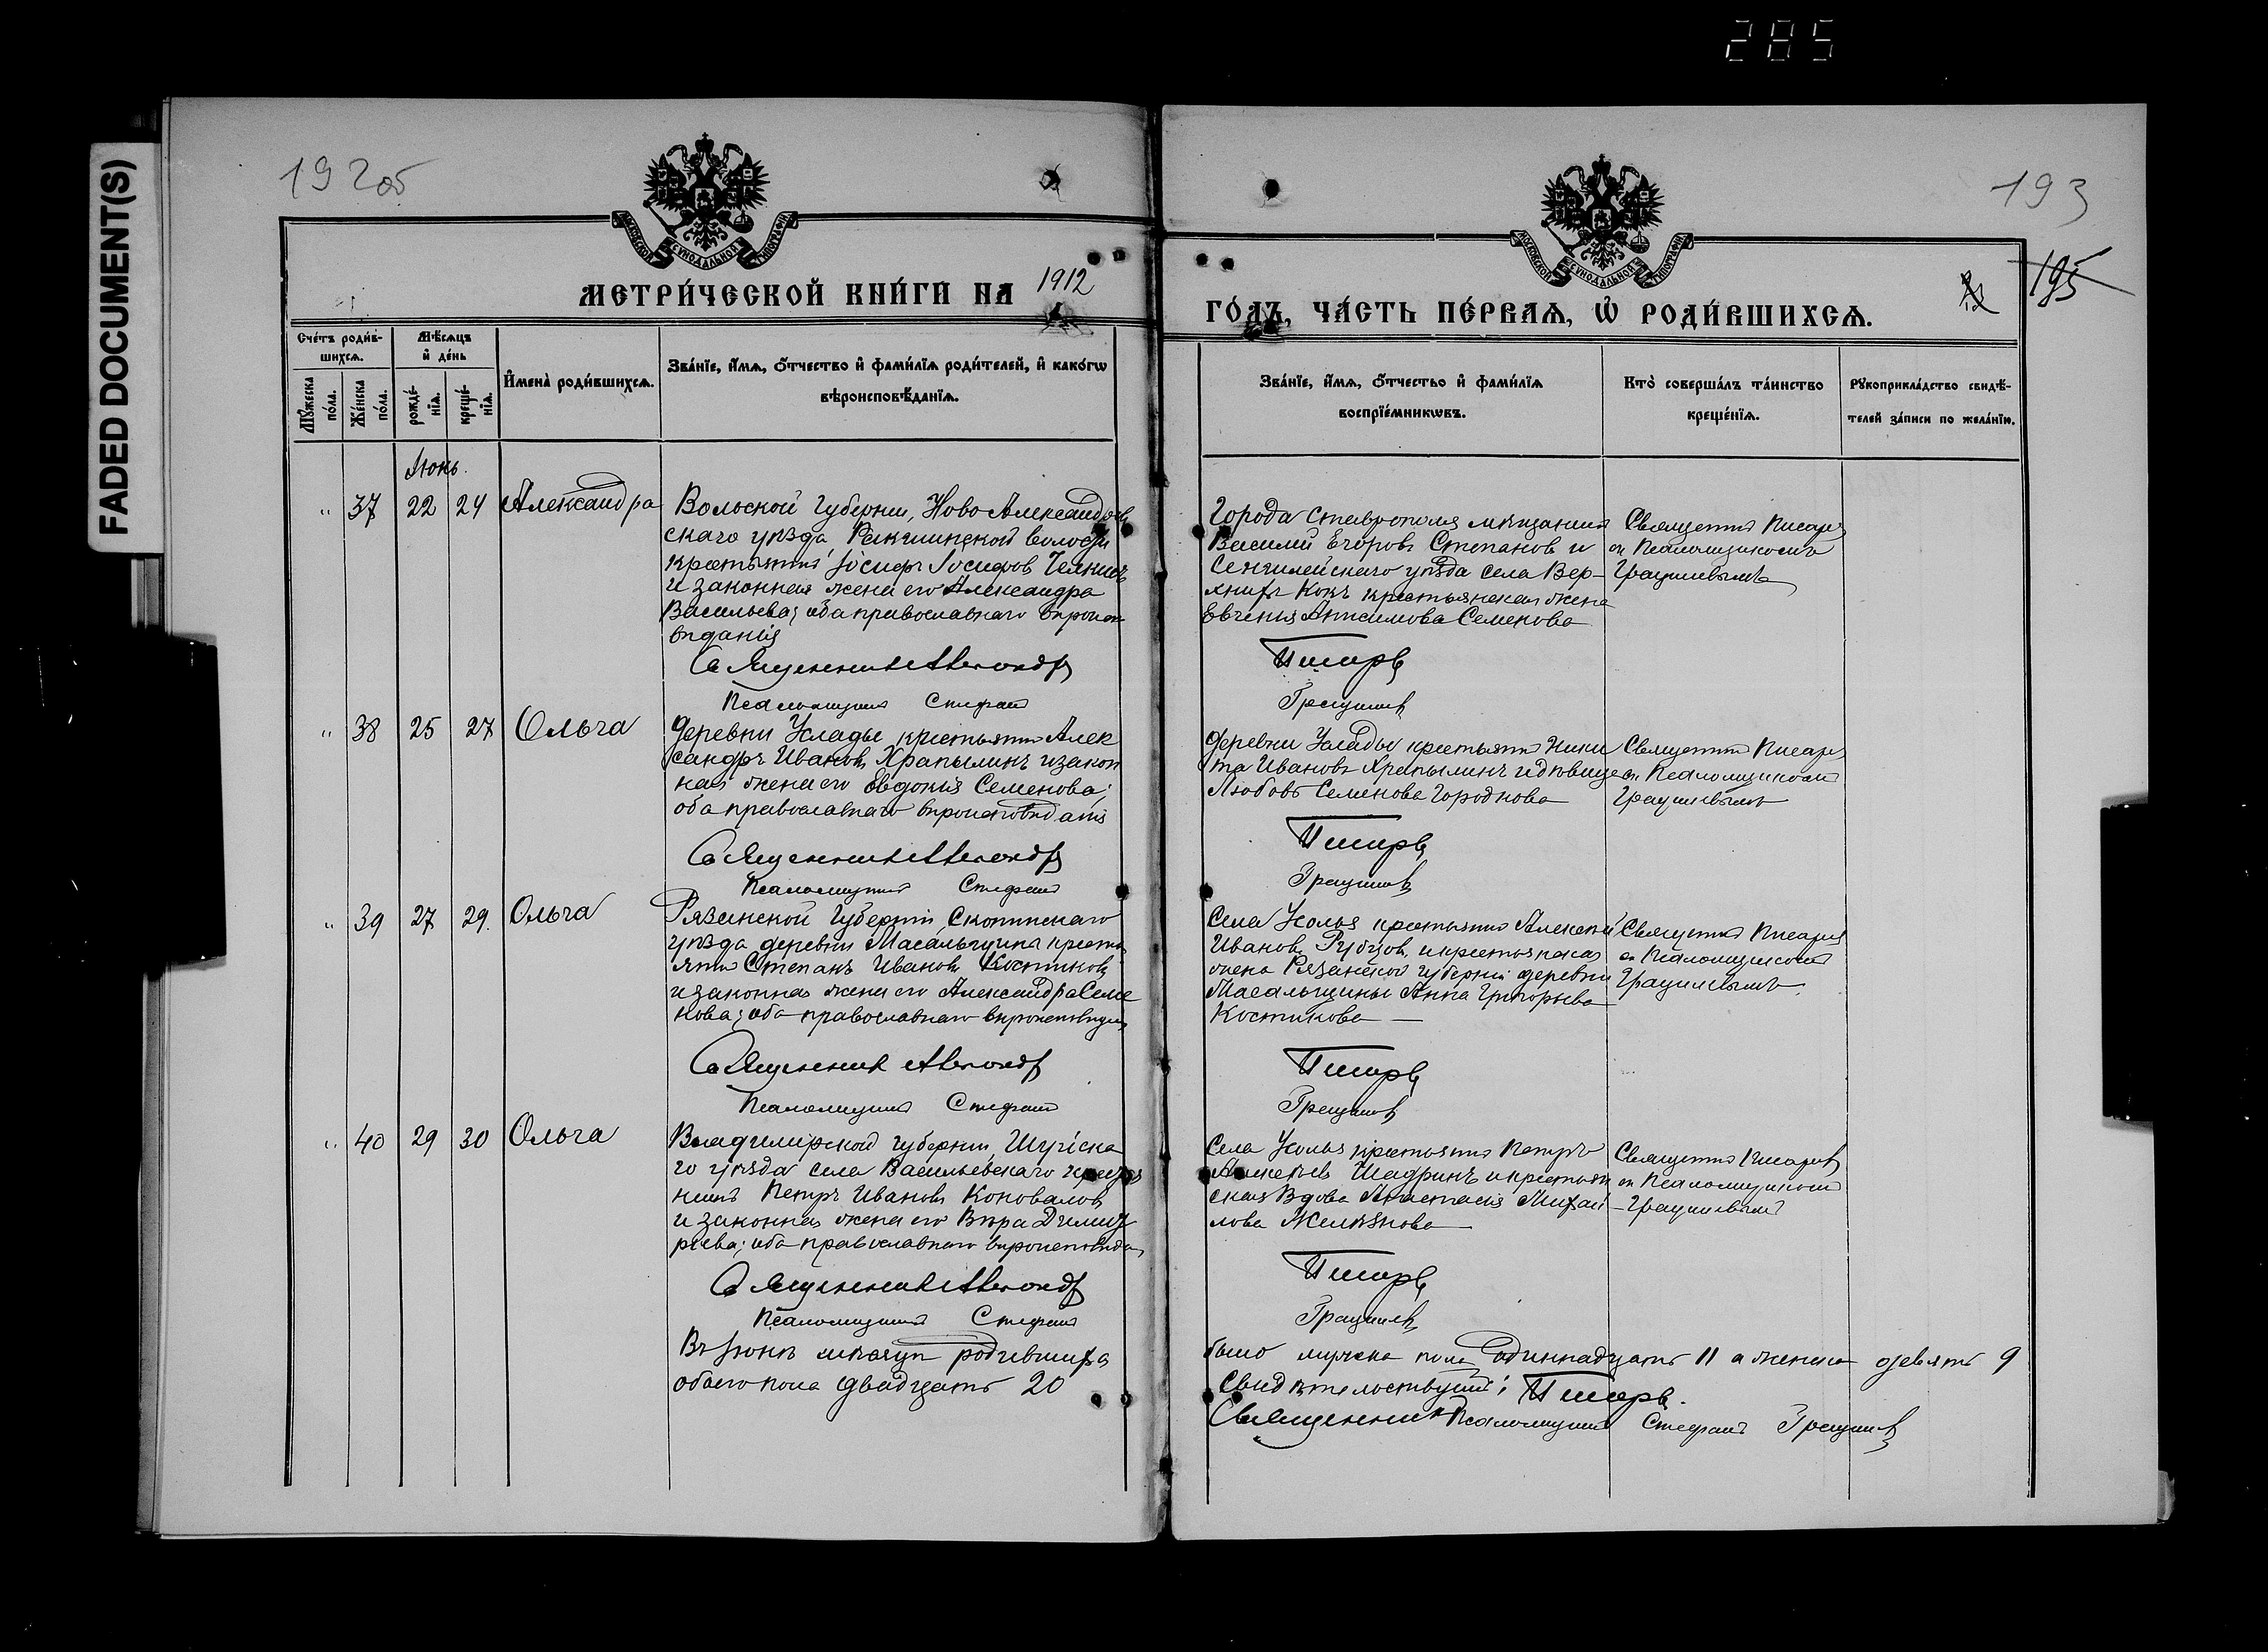 285
FADED DOCUMENT(S)
192об
193
195
МОСКОВСКОЙ СУНОДАЛЬНОЙ ТИПОГРАФІИ
МОСКОВСКОЙ СУНОДАЛЬНОЙ ТИПОГРАФІИ
МЕТРИ́ЧЕСКОЙ КНИ́ГИ НА 1912
ГО́ДЪ, ЧА́СТЬ ПЕ́РВАѦ, Ѡ РОДИ́ВШИХСѦ.
Сче́тъ роди́в-
шихсѧ.
Мѣ́сѧцъ
и де́нь
Мꙋжеска по́ла.
Же́нска по́ла.
рожде́-
нїѧ.
креще́-
нїѧ.
И҆мена̀ роди́вшихсѧ.
Зва́нїе, и҆́мѧ, ѻ҆́тчество и҆ фами́лїѧ роди́телей, и҆ како́гѡ
вѣроисповѣ́данїѧ.
Зва́нїе, и҆́мѧ, ѻ҆́тчество и҆ фами́лїѧ
воспрїе́мникѡвъ.
Кто̀ соверша́лъ та́инство
креще́нїѧ.
Рꙋкоприкла́дство свидѣ́-
телей за́писи по жела́нїю.
Іюнь.
" 37 22 24 Александра
губерніи, Ново Александров
скаго уѣзда волости
крестьянинъ Іосифъ Іосифовъ
и законная жена его Александра
Васильева; оба православнаго вѣроиспо
вѣданія
Священникъ Александръ
Псаломщикъ Стефанъ
Города Ставрополя мѣщанинъ
Василий Егоровъ Степановъ и
Сенгилейскаго уѣзда села Вер-
крестьянская жена
Евгенія Анисимова Семенова
Писаревъ
Священникъ Писаревъ
съ Псаломщикомъ
" 38 25 27 Ольга
Деревни Услады крестьянинъ Алек
сандръ Ивановъ Храпылинъ и закон
ная жена его Евдокія Семенова;
оба православнаго вѣроисповѣданія
Священникъ Александръ
Псаломщикъ Стефанъ
Деревни Услады крестьянинъ Ники
та Ивановъ Храпылинъ и дѣвица
Любовь Семенова Городнова
Писаревъ
Священникъ Писаревъ
съ Псаломщикомъ
" 39 27 29. Ольга
Рязанской Губерніи, Скопинскаго
уѣзда деревни Масальщины кресть
янинъ Степанъ Ивановъ Костиковъ
и законная жена его Александра Семе
нова; оба православнаго вѣроисповѣданія
Священникъ Александръ
Псаломщикъ Стефанъ
Села Усолья крестьянинъ Алексѣй
Ивановъ Рубцовъ и крестьянская
жена Рязанской губерніи деревни
Масальщины Анна Григорьева
Костикова
Писаревъ
Священникъ Писаревъ
съ Псаломщикомъ
" 40 29 30 Ольга
Владимирской губерніи, Шуйска
го уѣзда села Васильевскаго
Петръ Ивановъ Коноваловъ
и законная жена его Вѣра Димит
ріева; оба православнаго вѣроисповѣдан
Священникъ Александръ
Псаломщикъ Стефанъ
Села Усолья крестьянинъ Петръ
Алексѣевъ Шадринъ и крестьян
ская вдова Анастасія Михай
лова Желѣзнова
Писаревъ
Священникъ Писаревъ
съ Псаломщикомъ
Въ Іюнѣ мѣсяцѣ родившихся
обоего пола двадцать 20
было мужска пола одиннадцать 11 а женска девять 9
Свидѣтельствуютъ: Писаревъ.
Священникъ Псаломщикъ Стефанъ